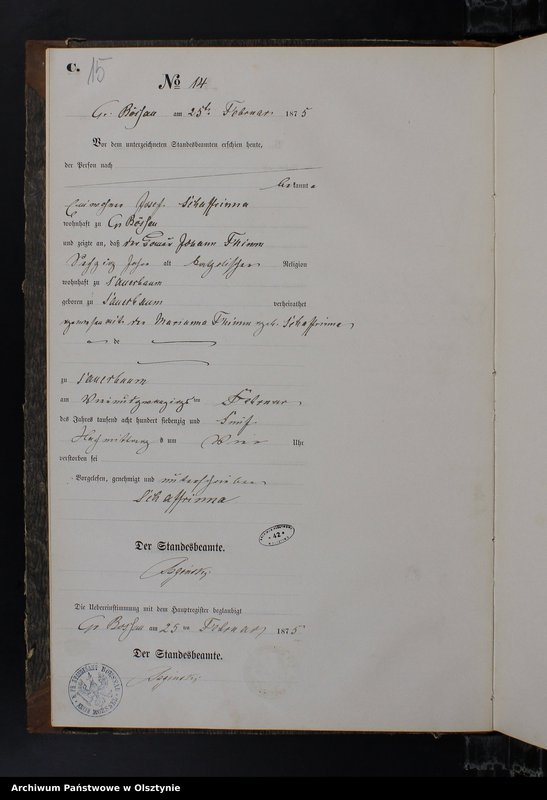 C. 15
No 14
Gr. Bößau am 25ten Februar 1875
Vor dem unterzeichneten Standesbeamten erschien heute,
der Person nach
bekannt
Einwohner Josef Schaffrinna
wohnhaft zu Gr Bößau
und zeigte an, daß der Johann Thimm
Sechzig Jahre alt katholischer Religion
wohnhaft zu Lauterbaum
geboren zu Lauterbaum verheirathet
gewesen mit der Marianna Thimm geb. Schaffrinna
zu
am Februar
des Jahres tausend acht hundert siebenzig und fünf
Nachmittags um Uhr
verstorben sei
Vorgelesen, genehmigt und unterschrieben
Schaffrinna
Der Standesbeamte.
42
Die Uebereinstimmung mit dem Hauptregister beglaubigt
Gr Bößau am 25ten Februar 1875
Der Standesbeamte.
Archiwum Państwowe w Olsztynie